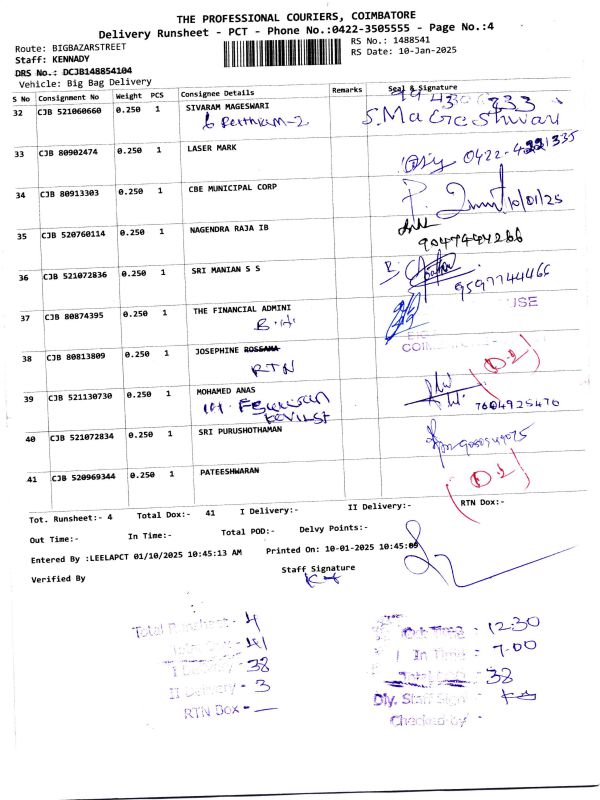 THE PROFESSIONAL COURIERS, COIMBATORE
Delivery Runsheet - PCT - Phone No.:0422-3505555 - Page No.:4
Route: BIGBAZARSTREET
RS No.: 1488541
Staff: KENNADY
RS Date: 10-Jan-2025
DRS No.: DCJB148854104
Vehicle: Big Bag Delivery
S No Consignment No Weight PCS Consignee Details Remarks Seal & Signature
32 CJB 521060660 0.250 1 SIVARAM MAGESWARI
S.Mageshwari
33 CJB 80902474 0.250 1 LASER MARK
34 CJB 80913303 0.250 1 CBE MUNICIPAL CORP
10/01/25
35 CJB 520760114 0.250 1 NAGENDRA RAJA IB
9047494266
36 CJB 521072836 0.250 1 SRI MANIAN S S
9597744466
37 CJB 80874395 0.250 1 THE FINANCIAL ADMINI
B.H
USE
38 CJB 80813809 0.250 1 JOSEPHINE ROSSAMA
RTN
39 CJB 521130730 0.250 1 MOHAMED ANAS
7604925470
40 CJB 521072834 0.250 1 SRI PURUSHOTHAMAN
41 CJB 520969344 0.250 1 PATEESHWARAN
Tot. Runsheet:- 4 Total Dox:- 41 I Delivery:- II Delivery:- RTN Dox:-
Out Time:- In Time:- Total POD:- Delvy Points:-
Entered By :LEELAPCT 01/10/2025 10:45:13 AM Printed On: 10-01-2025 10:45:09
Verified By Staff Signature
Total Runsheet - 4
Total Dox - 41
I Delivery - 38
II Delivery - 3
RTN Dox -
Out Time - 12:30
In Time - 7.00
Total - 38
Dly. Staff Sign -
Checked by -